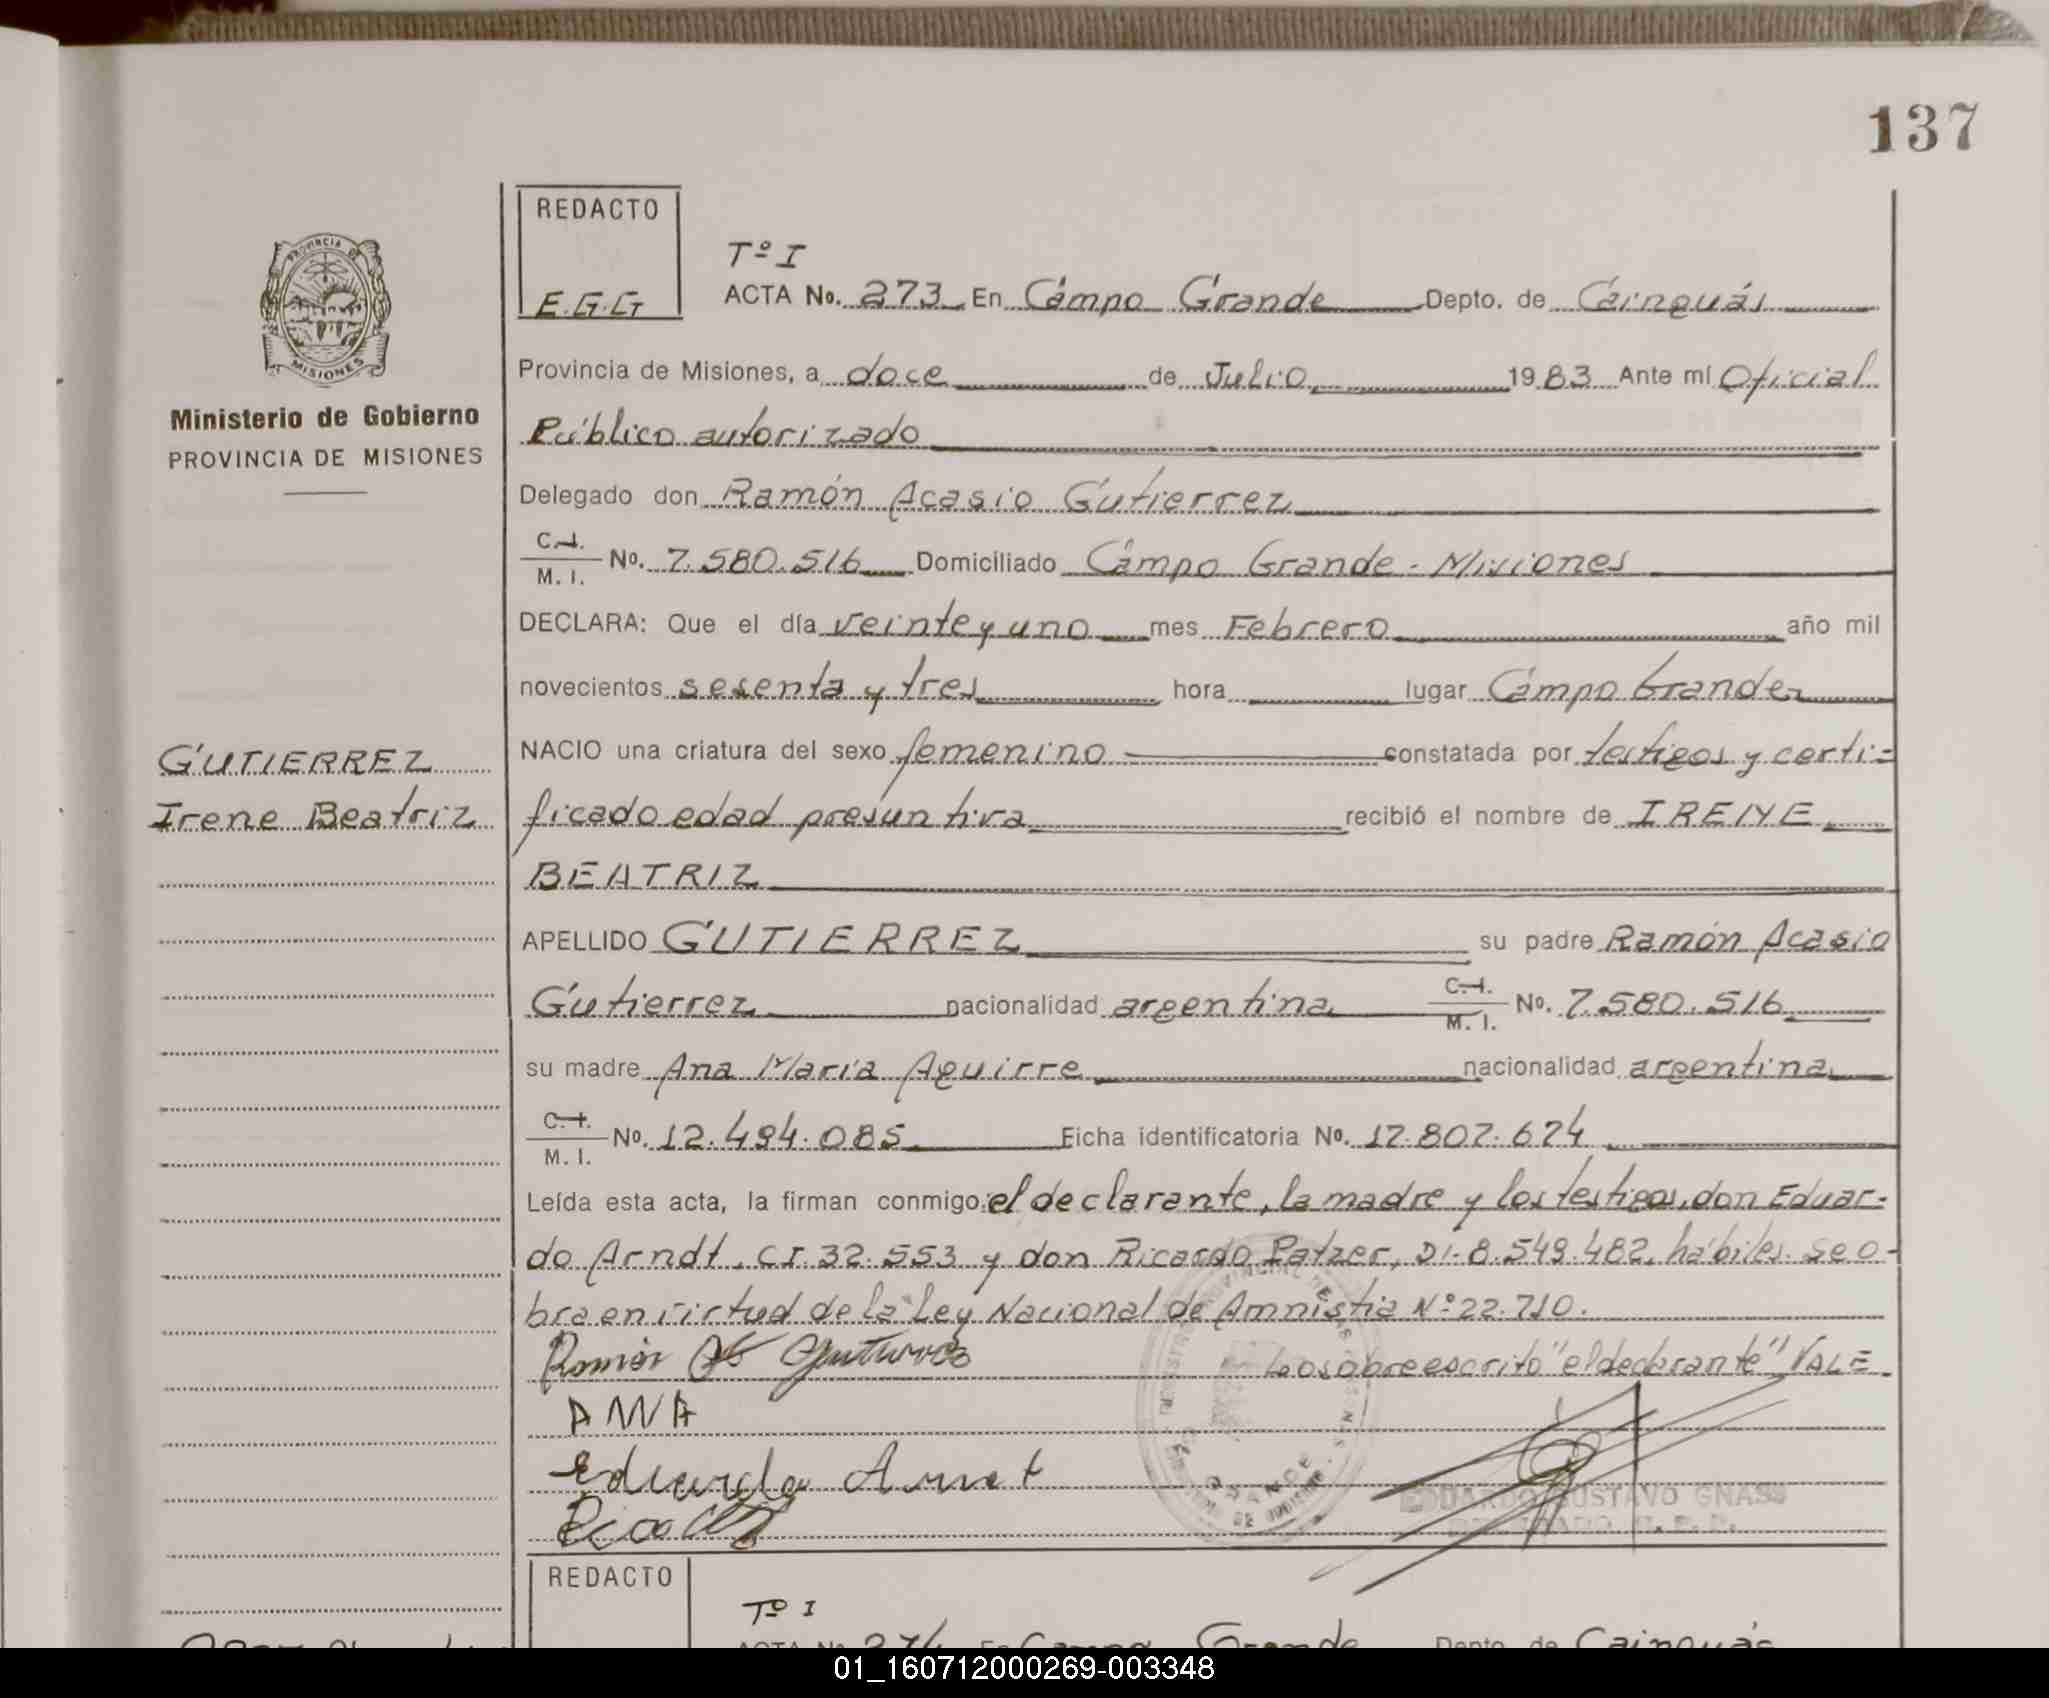 137
REDACTO
E.G.G
Tº I
ACTA No. 273 En Campo Grande Depto. de Cainguás
PROVINCIA DE
MISIONES
Ministerio de Gobierno
PROVINCIA DE MISIONES
Provincia de Misiones, a doce de Julio 1983 Ante mí Oficial
Público autorizado
Delegado don Ramón Acasio Gutierrez
C.I. M. I. No. 7.580.516 Domiciliado Campo Grande - Misiones
DECLARA: Que el día veinte y uno mes Febrero año mil
novecientos sesenta y tres hora lugar Campo Grande
GUTIERREZ
Irene Beatriz
NACIO una criatura del sexo femenino constatada por testigos y certi=
ficado edad presuntiva recibió el nombre de IRENE
BEATRIZ
APELLIDO GUTIERREZ su padre Ramón Acasio
Gutierrez nacionalidad argentina C.I. M. I. No. 7.580.516
su madre Ana María Aguirre nacionalidad argentina
C.I. M. I. No. 12.494.085 Ficha identificatoria No. 17.807.674
Leída esta acta, la firman conmigo: el declarante, la madre y los testigos, don Eduar=
do Arndt, CI. 32.553 y don Ricardo Patzer, DI. 8.549.482, hábiles. Se o-
bra en virtud de la Ley Nacional de Amnistia Nº 22.710.
Lo sobreescrito "el declarante" VALE
ANA
GRANDE
EDUARDO GUSTAVO GNASS
REDACTO
Tº I
ACTA No. 274 En Campo Grande Depto. de Cainguás
01_160712000269-003348